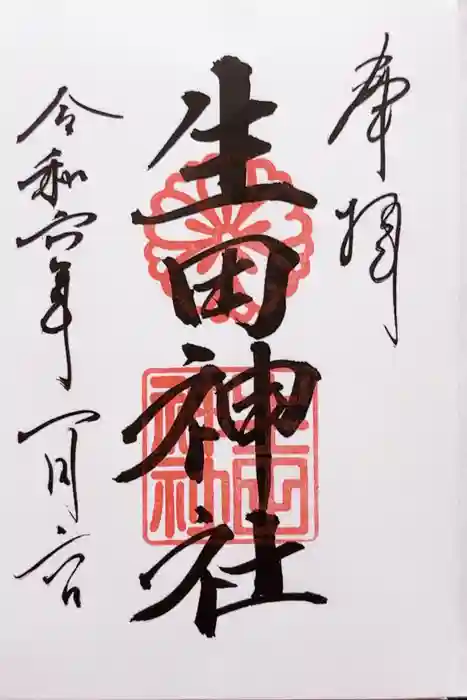 奉拝
生田神社
生田神社
令和六年一月一日